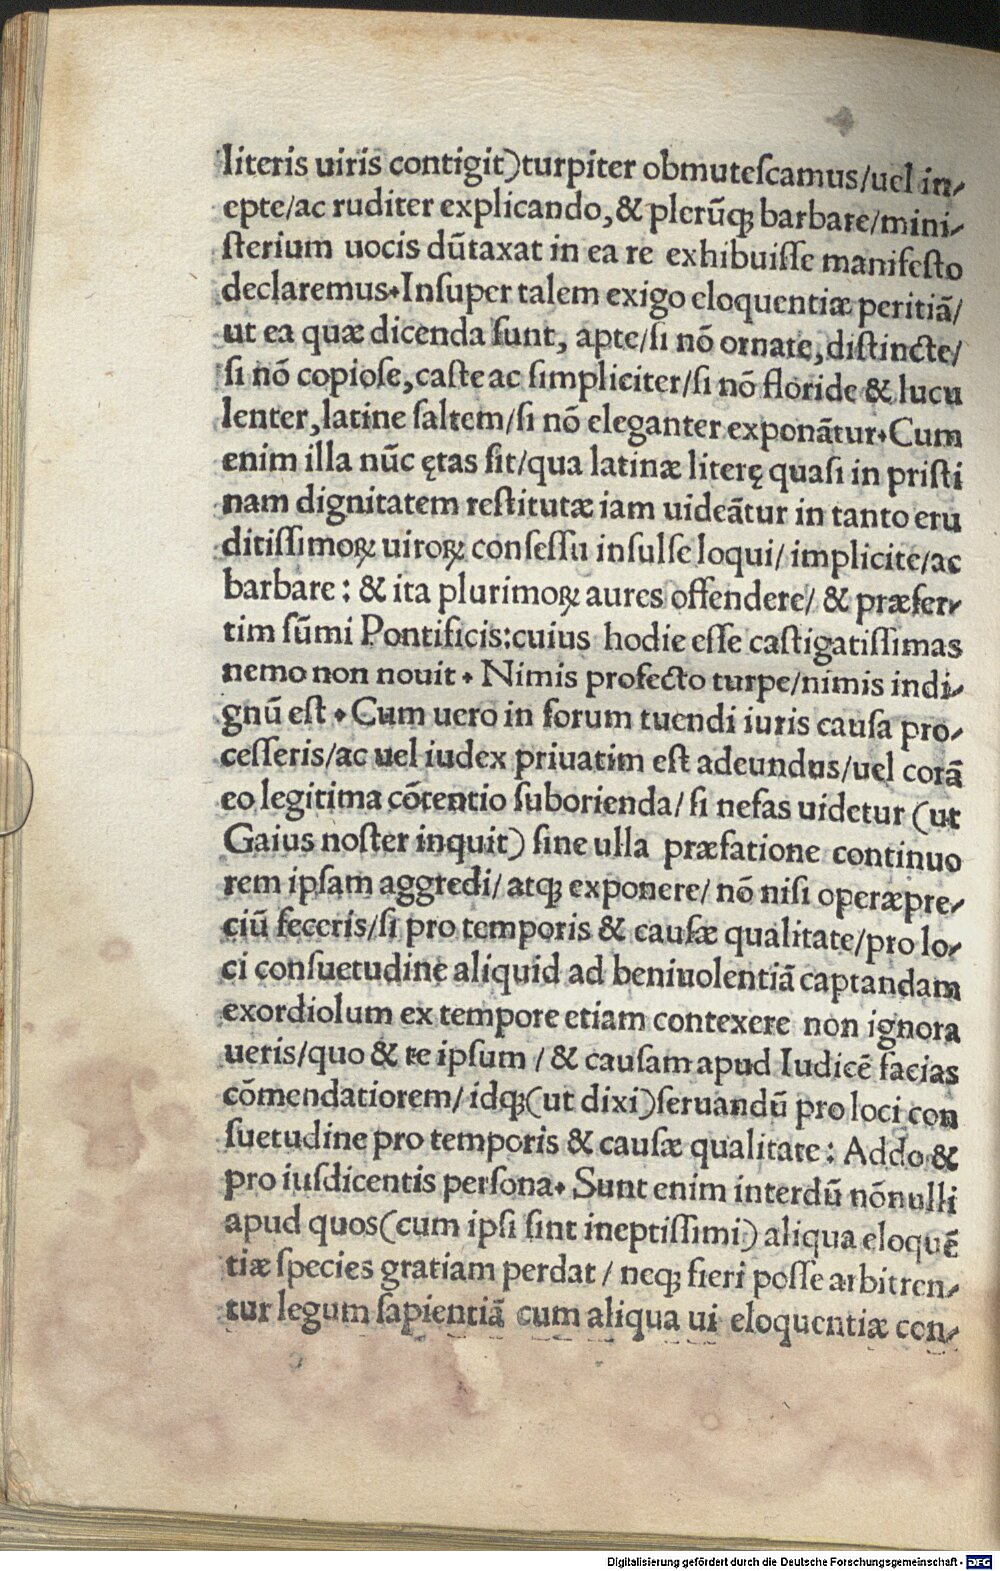 literis uiris contigit)turpiter obmuteſcamus/uel in⸗
epte/ac ruditer explicando,& plerūqꝫ barbare/mini⸗
ſterium uocis dūtaxat in ea re exhibuiſſe manifeſto
declaremus.Inſuper talem exigo eloquentiæ peritiā/
ut ea quæ dicenda ſunt, apte/ſi nō ornate,diſtincte/
ſi nō copioſe,caſte ac ſimpliciter/ſi nō floride & lucu
lenter,latine ſaltem/ſi nō eleganter exponātur.Cum
enim illa nūc ętas ſit/qua latinæ literę quaſi in priſti
nam dignitatem reſtitutæ iam uideātur in tanto eru
ditiſſimoꝝ uiroꝝ conſeſſu inſulſe loqui/ implicite/ac
barbare : & ita plurimoꝝ aures offendere/ & præſer⸗
tim ſūmi Pontificis:cuius hodie eſſe caſtigatiſſimas
nemo non nouit . Nimis profecto turpe/nimis indi⸗
gnū eſt . Cum uero in forum tuendi iuris cauſa pro⸗
ceſſeris/ac uel iudex priuatim eſt adeundus/uel corā
eo legitima cōtentio ſuborienda/ ſi nefas uidetur (ut
Gaius noſter inquit) ſine ulla præfatione continuo
rem ipſam aggredi/ atqꝫ exponere/ nō niſi operæpre⸗
ciū feceris/ſi pro temporis & cauſæ qualitate/pro lo⸗
ci conſuetudine aliquid ad beniuolentiā captandam
exordiolum ex tempore etiam contexere non ignora
ueris/quo & te ipſum / & cauſam apud Iudicē facias
cōmendatiorem/ idqꝫ(ut dixi)ſeruandū pro loci con
ſuetudine pro temporis & cauſæ qualitate : Addo &
pro iuſdicentis perſona. Sunt enim interdū nōnulli
apud quos(cum ipſi ſint ineptiſſimi) aliqua eloquē
tiæ ſpecies gratiam perdat / neqꝫ fieri poſſe arbitren⸗
tur legum ſapientiā cum aliqua ui eloquentiæ con⸗
Digitalisierung gefördert durch die Deutsche Forschungsgemeinschaft - DFG